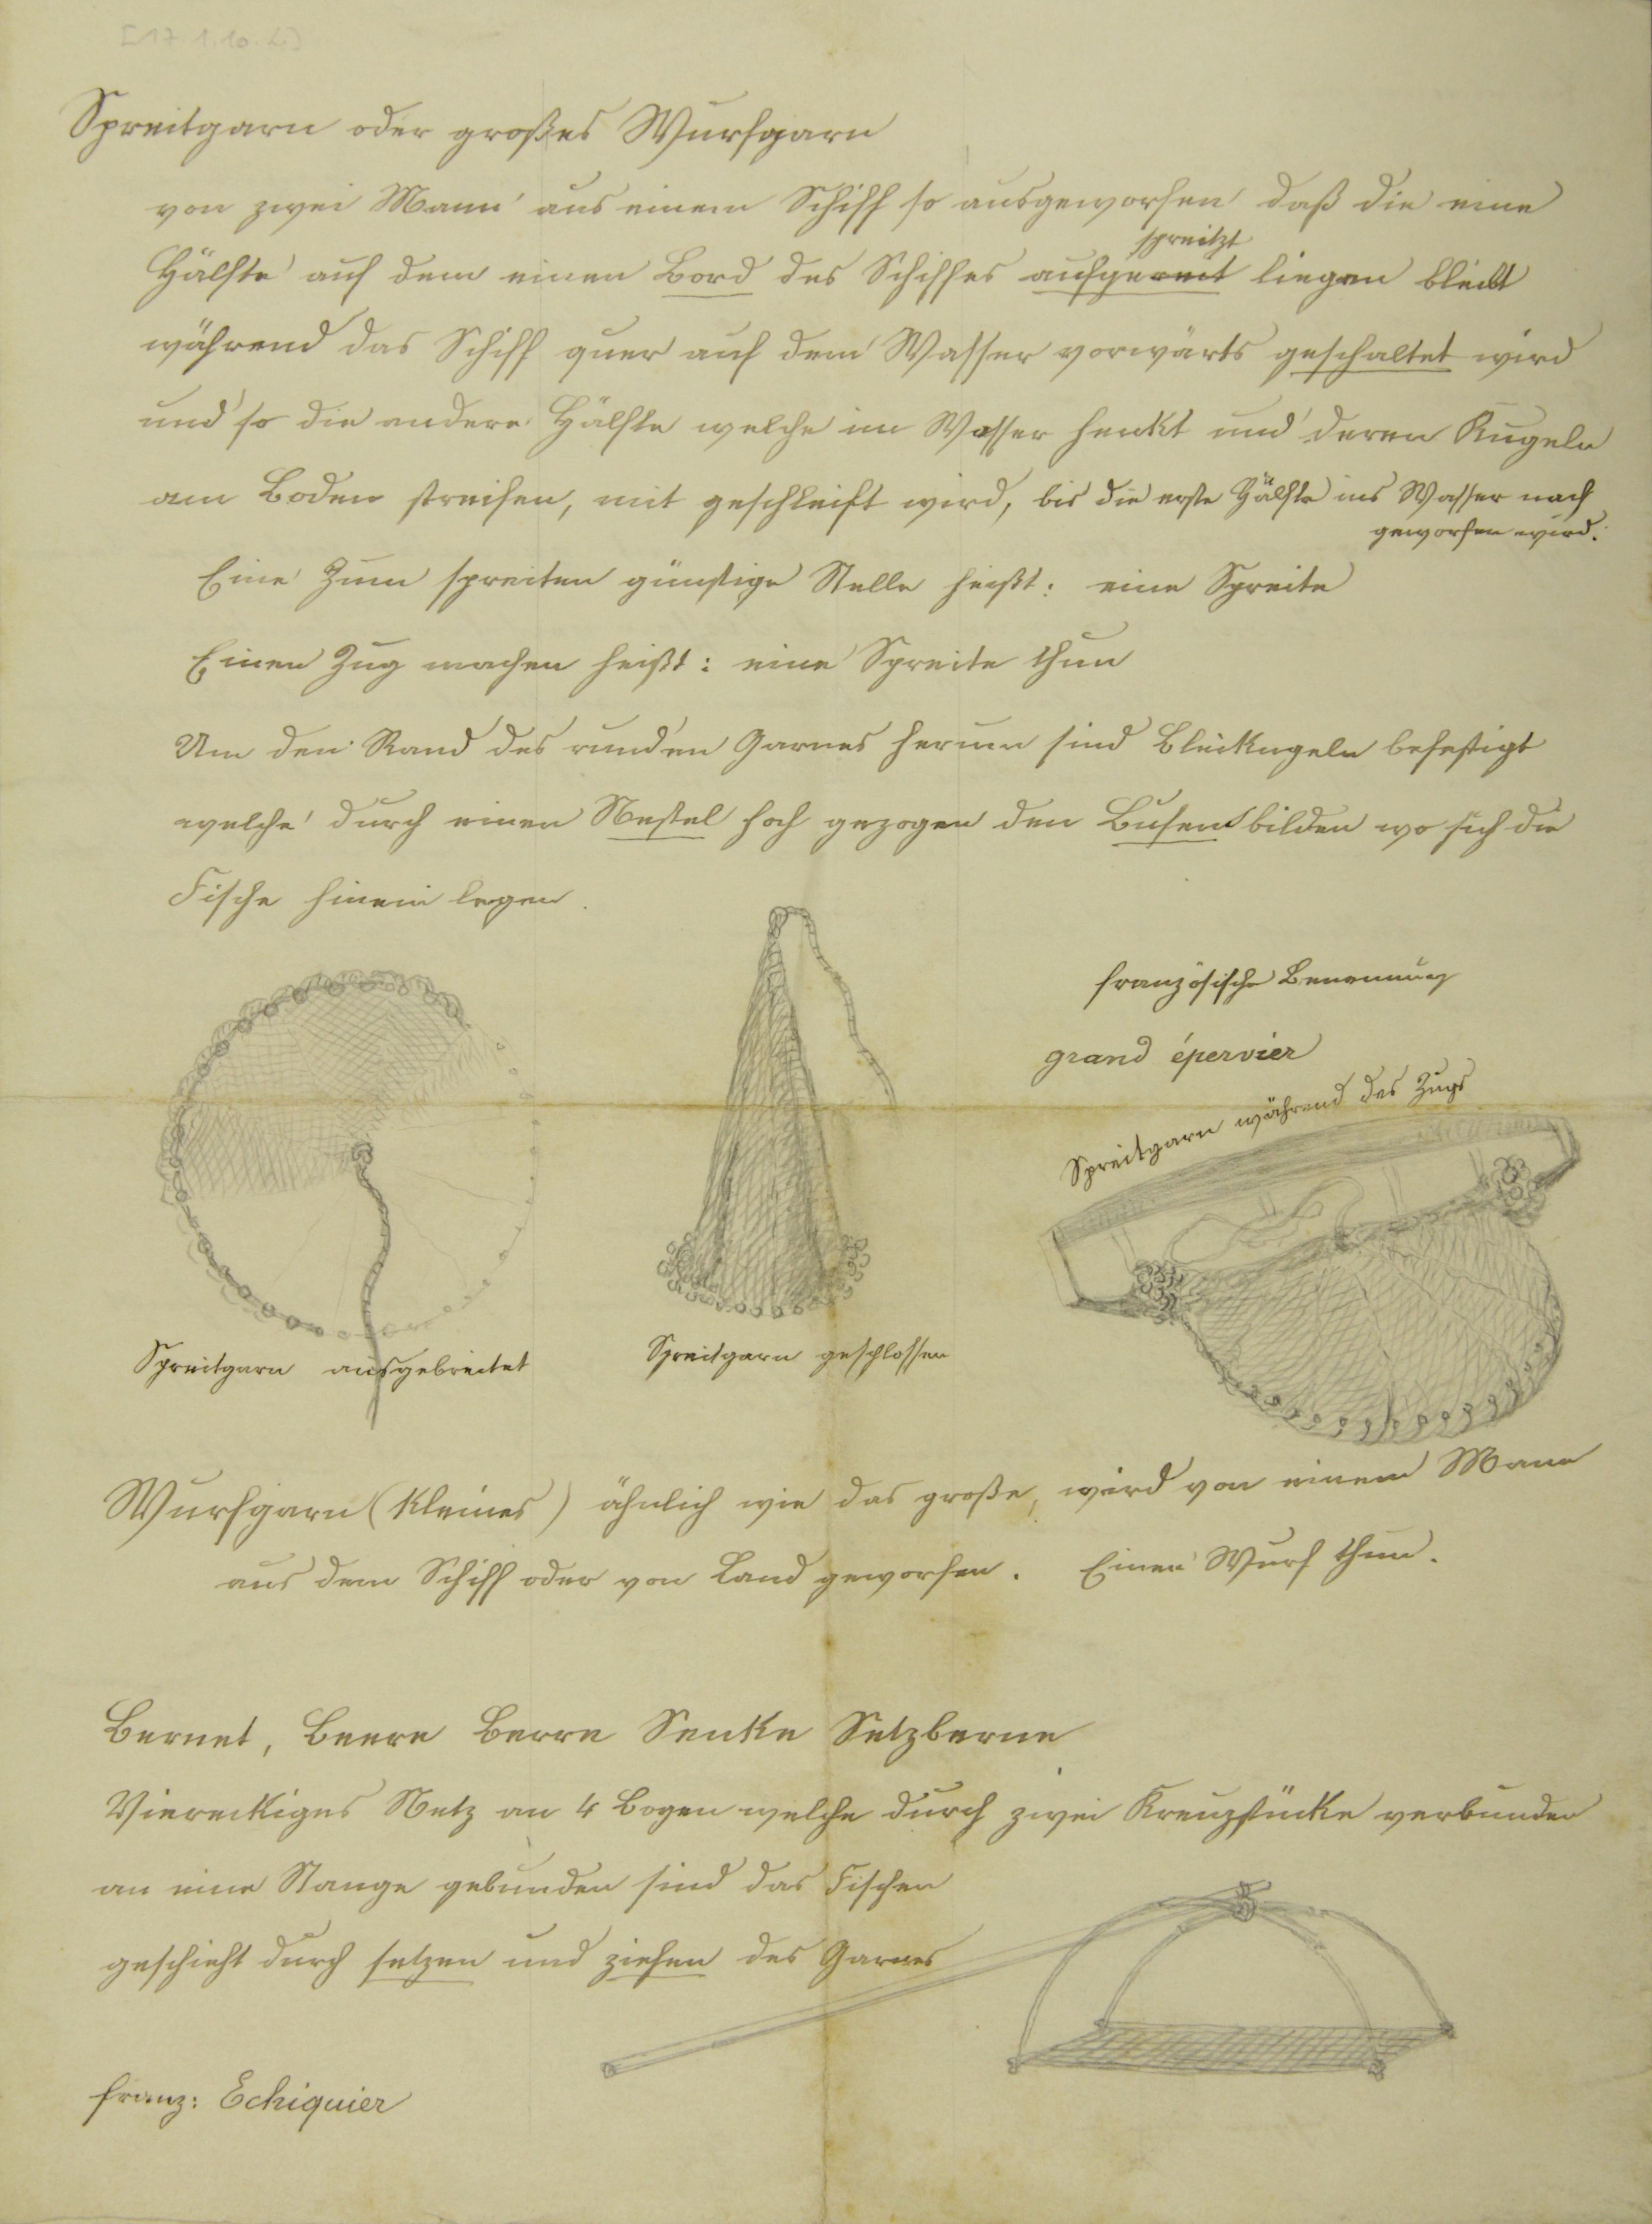 [17. 1.10.4.]
Spreitgarn oder großes Wurfgarn
von zwei Mann aus einem Schiff so ausgeworfen daß die eine
spreitzt
Hälfte auf dem einen Bord des Schiffes aufgereit liegen bleibt
während das Schiff quer auf dem Wasser vorwärts geschaltet wird
und so die andere Hälfte welche im Wasser henkt und deren Kugeln
am Boden streifen, mit geschleift wird, bis die erste Hälfte ins Wasser nach
geworfen wird.
Eine zum spreiten günstige Stelle heißt: eine Spreite
Einen Zug machen heißt: eine Spreite thun
Um den Rand des runden Garnes herum sind Bleikugeln befestigt
welche durch einen Nestel hoch gezogen den Busen bilden wo sich die
Fische hinein legen.
französische Benennung
grand épervier
Spreitgarn während des Zugs
Spreitgarn ausgebreitet
Spreitgarn geschlossen
Wurfgarn (kleines) ähnlich wie das große, wird von einem Mann
aus dem Schiff oder von Land geworfen. Einen Wurf thun.
Bernet, Beere Berre Senke Setzberne
Viereckiges Netz an 4 Bogen welche durch zwei Kreuzstücke verbunden
an eine Stange gebunden sind das Fischen
geschieht durch setzen und ziehen des Garnes
franz: Echiquier